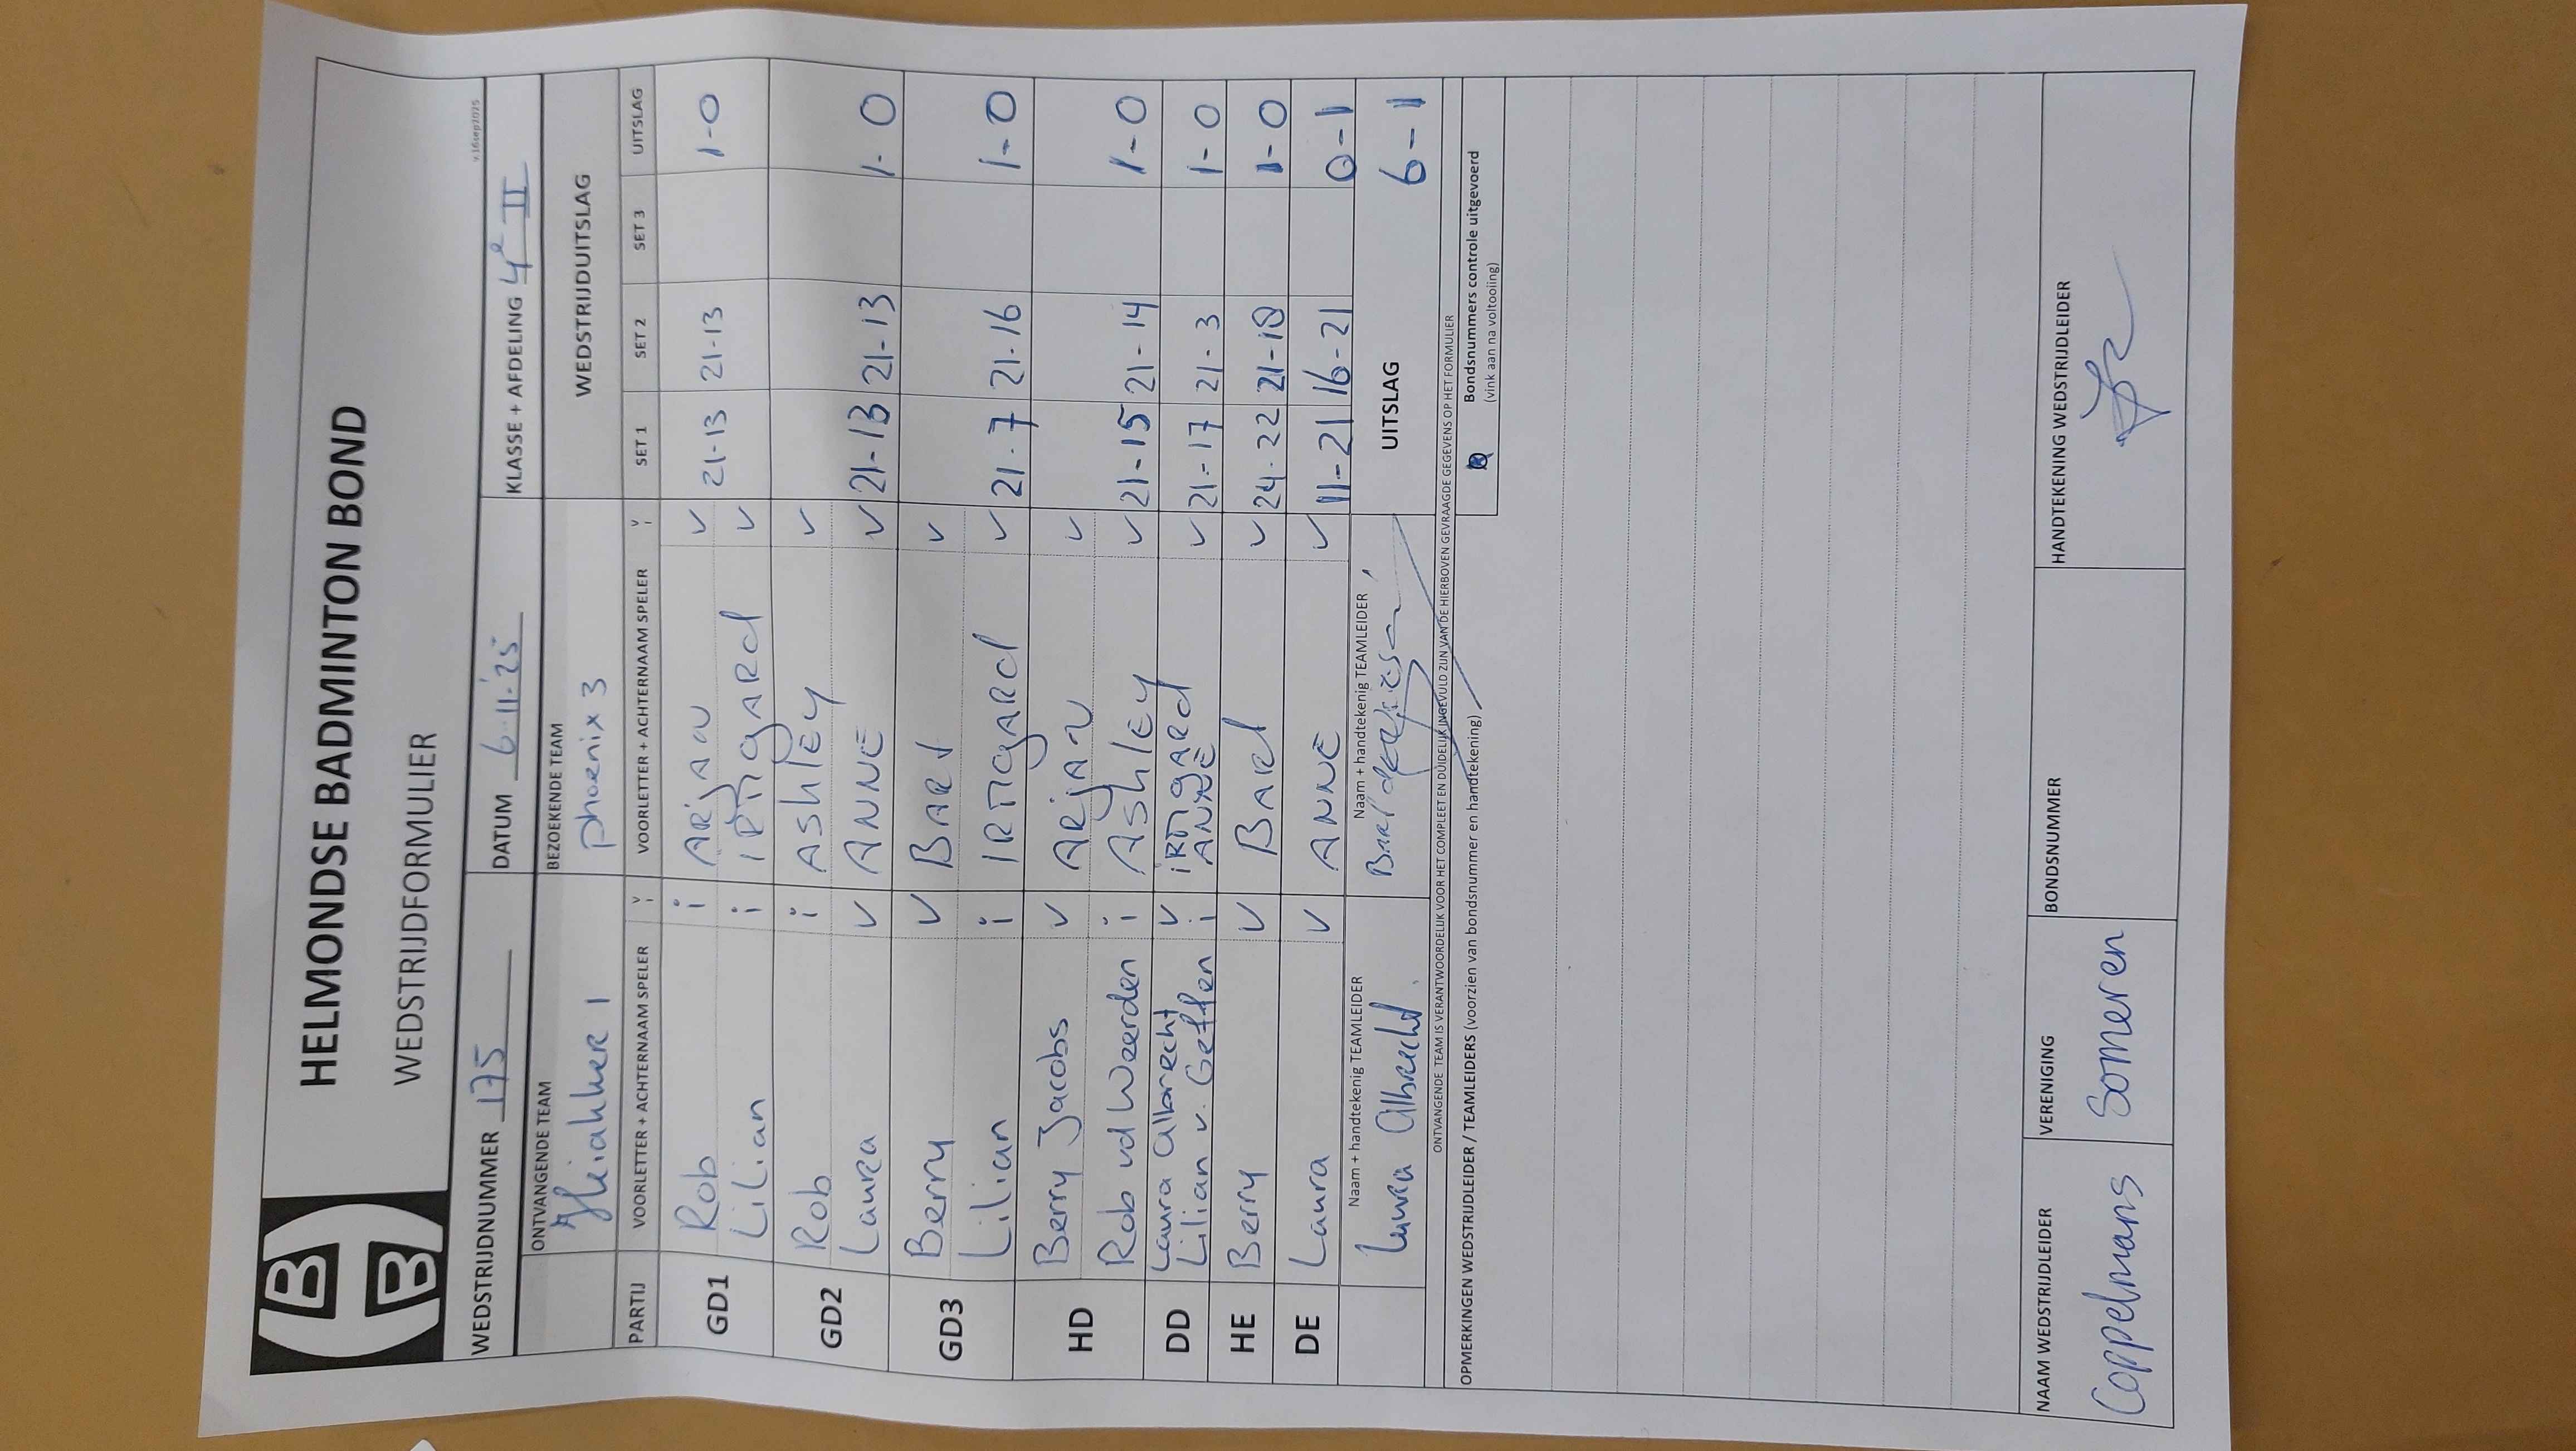 HELMONDSE BADMINTON BOND
WEDSTRIJDFORMULIER
v.16sep2025
WEDSTRIJDNUMMER 175 DATUM 6-11-'25 KLASSE + AFDELING 4e II
ONTVANGENDE TEAM BEZOEKENDE TEAM WEDSTRIJDUITSLAG
Phoenix 3
PARTIJ VOORLETTER + ACHTERNAAM SPELER V i VOORLETTER + ACHTERNAAM SPELER V i SET 1 SET 2 SET 3 UITSLAG
GD1 Rob i ARjAN v 21-13 21-13 1-0
Lilian i iRmgARd v
GD2 Rob i AShlEy v
Laura v ANNE v 21-13 21-13 1-0
GD3 Berry v BARt v
Lilian i IRmgARd v 21-7 21-16 1-0
HD Berry Jacobs v ARjAN v
Rob vd Weerden i AShlEy v 21-15 21-14 1-0
DD Laura Albrecht v iRmgARd v 21-17 21-3 1-0
Lilian v. Geffen i ANNE
HE Berry v BARt v 24-22 21-18 1-0
DE Laura v ANNE v 11-21 16-21 0-1
Naam + handtekenig TEAMLEIDER Naam + handtekenig TEAMLEIDER UITSLAG 6-1
Laura Albrecht. Bart
ONTVANGENDE TEAM IS VERANTWOORDELIJK VOOR HET COMPLEET EN DUIDELIJK INGEVULD ZIJN VAN DE HIERBOVEN GEVRAAGDE GEGEVENS OP HET FORMULIER
OPMERKINGEN WEDSTRIJDLEIDER / TEAMLEIDERS (voorzien van bondsnummer en handtekening)
Bondsnummers controle uitgevoerd
(vink aan na voltooiing)
NAAM WEDSTRIJDLEIDER VERENIGING BONDSNUMMER HANDTEKENING WEDSTRIJDLEIDER
Coppelmans Someren